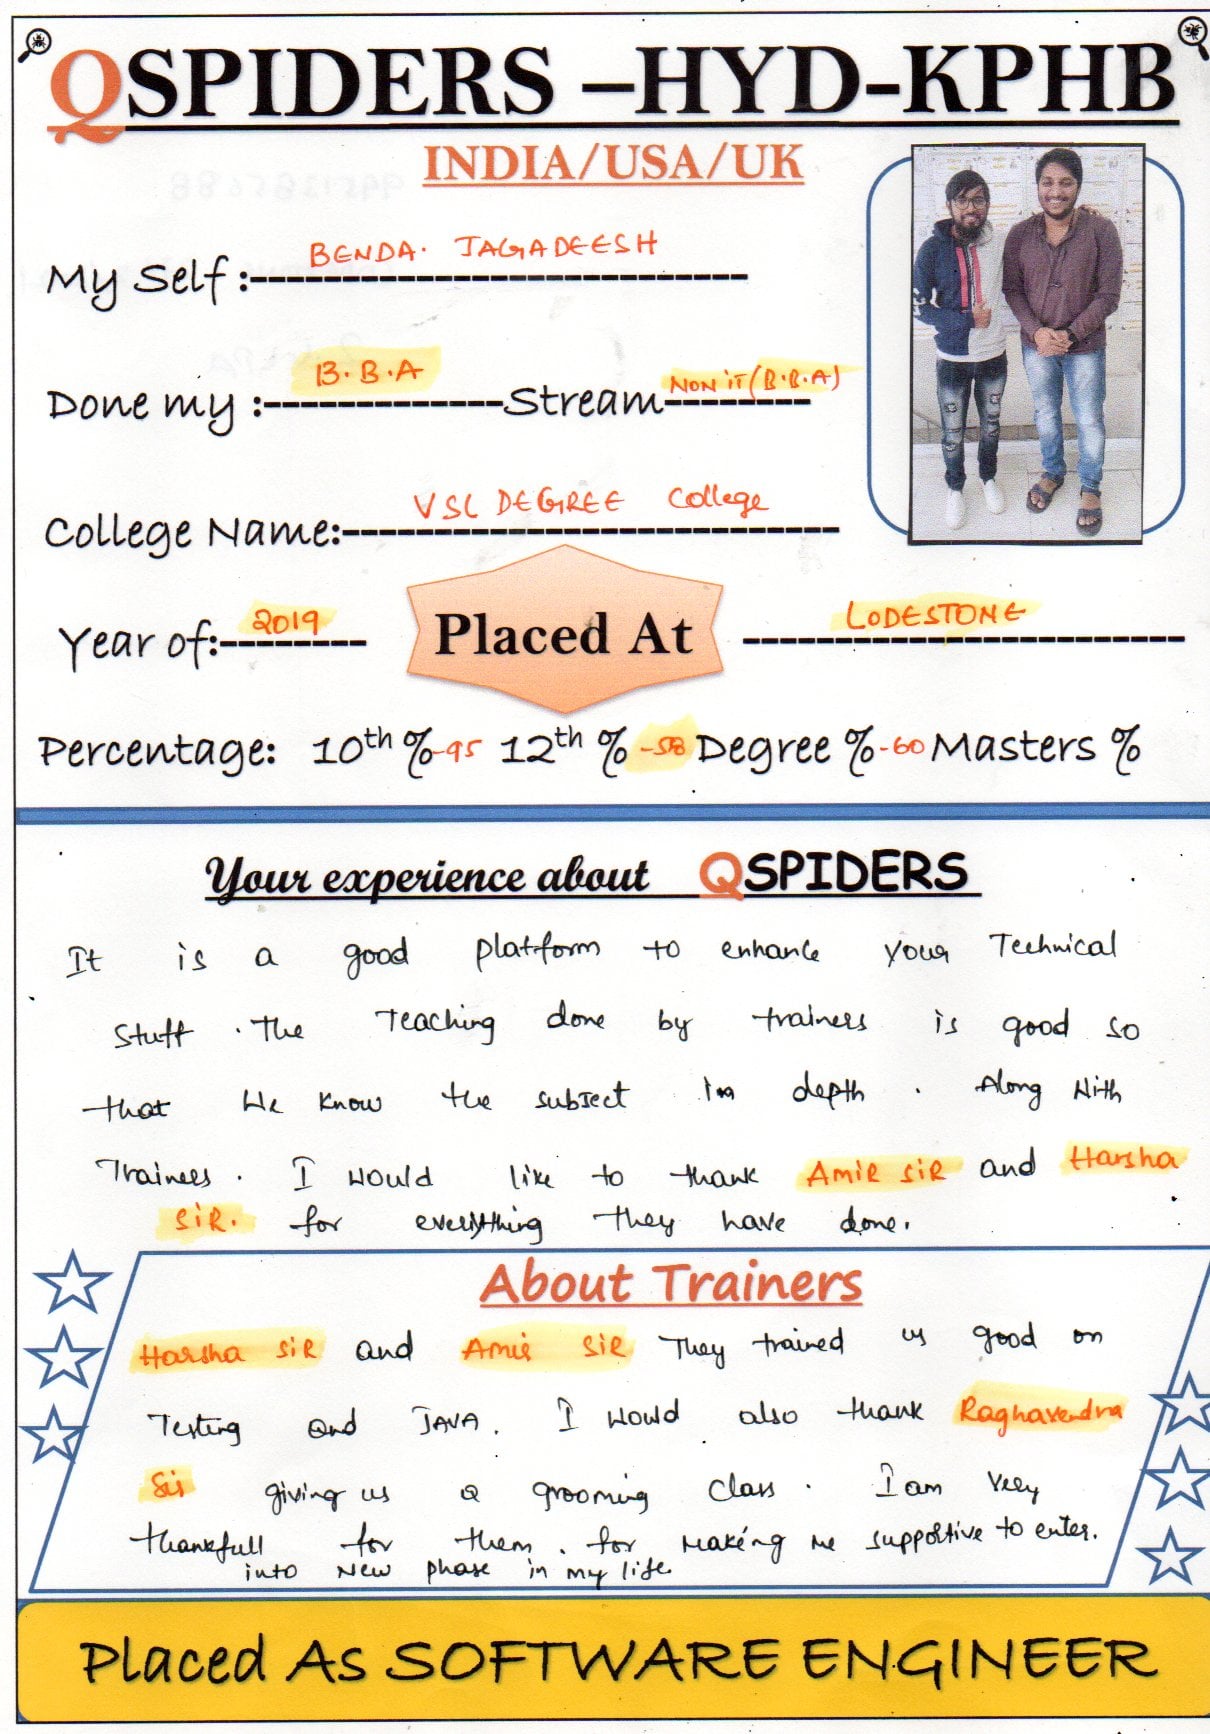 QSPIDERS –HYD-KPHB
INDIA/USA/UK
My Self :- BENDA. JAGADEESH
Done my :- B.B.A Stream NON iT (B.B.A)
College Name:- VSL DEGREE College
Year of:- 2019 Placed At LODESTONE
Percentage: 10th % -95 12th % -58 Degree % -60 Masters %
Your experience about QSPIDERS
It is a good platform to enhance your Technical
Stuff . The Teaching done by trainers is good so
that We know the subject in depth . Along With
Trainers . I would like to thank AMIR SIR and Harsha
SIR. for everything they have done.
About Trainers
Harsha SIR and Amir SIR They trained us good on
Testing and JAVA. I would also thank Raghavendra
Sir giving us a grooming class . I am very
thankfull for them . for making me supportive to enter.
into new phase in my life.
Placed As SOFTWARE ENGINEER